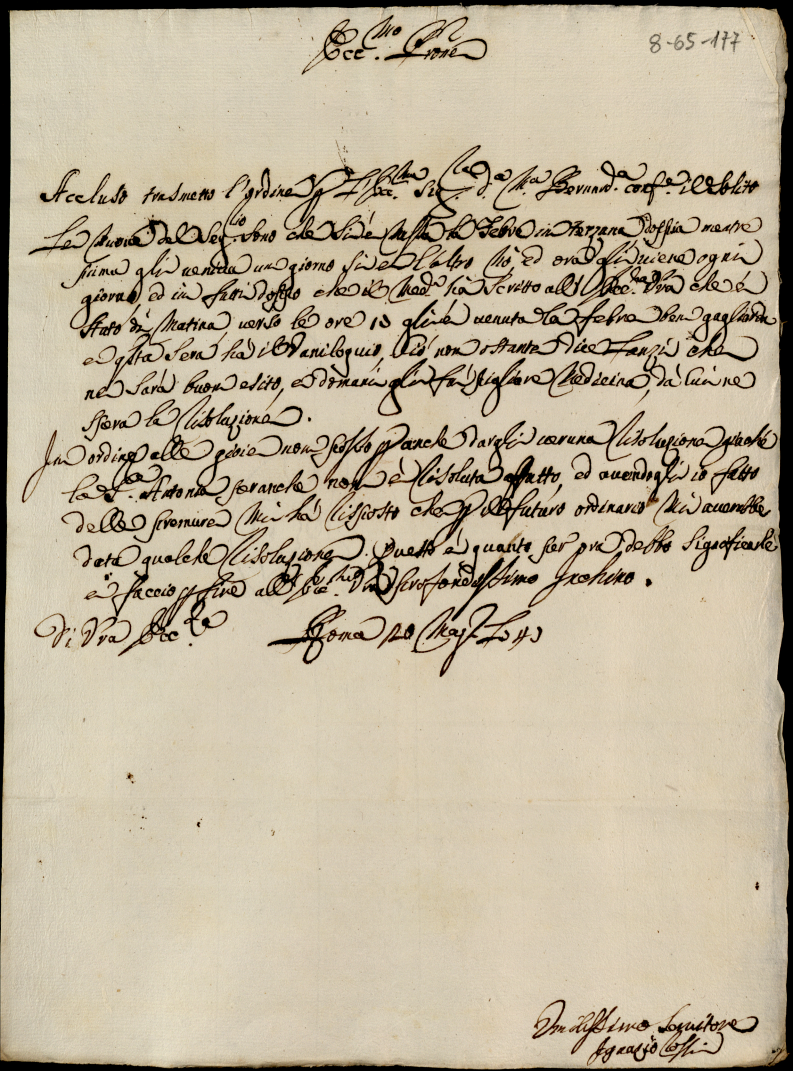 Ecc.mo Prone
8-65-177
Accluso trasmetto l'ordine p l'Ecc.ma Sig.ra D.a M.a Bernard.a conf.e il solito
Le nuove del Seg.rio sono che si è messa la Febre in terzana doppia mentre
prima gli veniva un giorno si e l'altro nò, ed ora gli viene ogni
giorno, ed in fatti doppo che il Med.o hà scritto all'Ecc.za Vra che è
stato di Matina, verso le ore 19 gli è venuta la febre ben gagliarda
e qsta sera hà il vaniloquio, ciò non ostante dice Lanzi che
ne sarà buon esito, e domani gli fà pigliare Medicina, da cui ne
spera la risoluzione.
In ordine alle gioie non posso p anche dargli veruna risoluzione giachè
la S.ra Antonia peranche non è risoluta affatto, ed avendogli io fatto
delle premure mi hà risposto che p il futuro ordinario mi averebbe
data qualche risoluzione. Questo è quanto per ora debbo significarle
e faccio p fine all'Ecc.za Vra profondissimo Inchino.
Di Vra Ecc.za Roma 20 Mag.o
Umilissimo Servitore
Ignazio Rossi